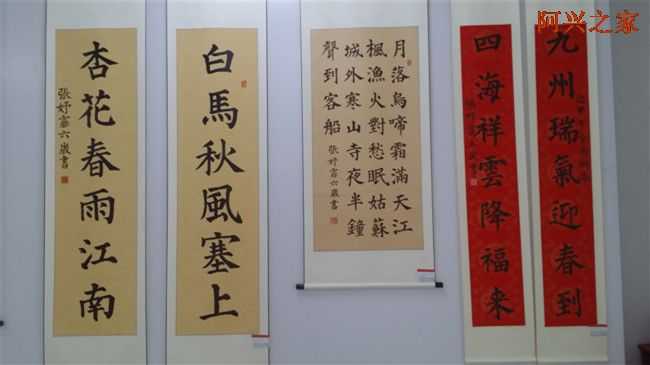 阿兴之家
九州瑞氣迎春到
四海祥雲降福来
月落烏啼霜滿天江
楓漁火對愁眠姑蘇
城外寒山寺夜半鐘
聲到客船 張妤甯六歲書
白馬秋風塞上
杏花春雨江南
張妤甯六歲書